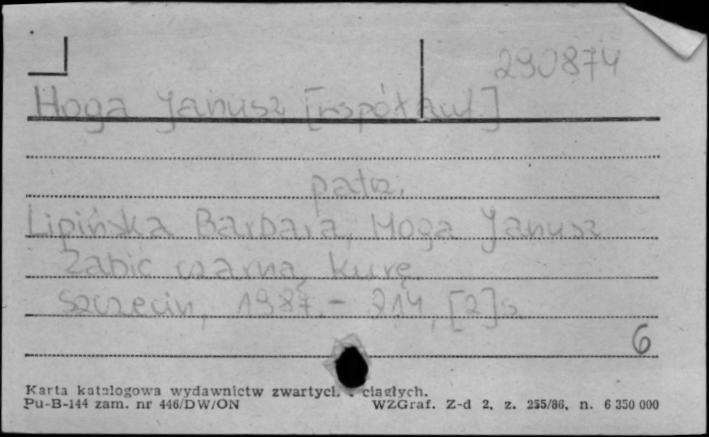 290874
Hoga Janusz [współaut.]
patrz.
Lipińska Barbara, Hoga Janusz
Zabić czarną kurę
Szczecin, 1987.- 214, [2] s.
6
Karta katalogowa wydawnictw zwartych . ciągłych.
Pu-B-144 zam. nr 446/DW/ON WZGraf. Z-d 2, z. 255/86, n. 6 350 000